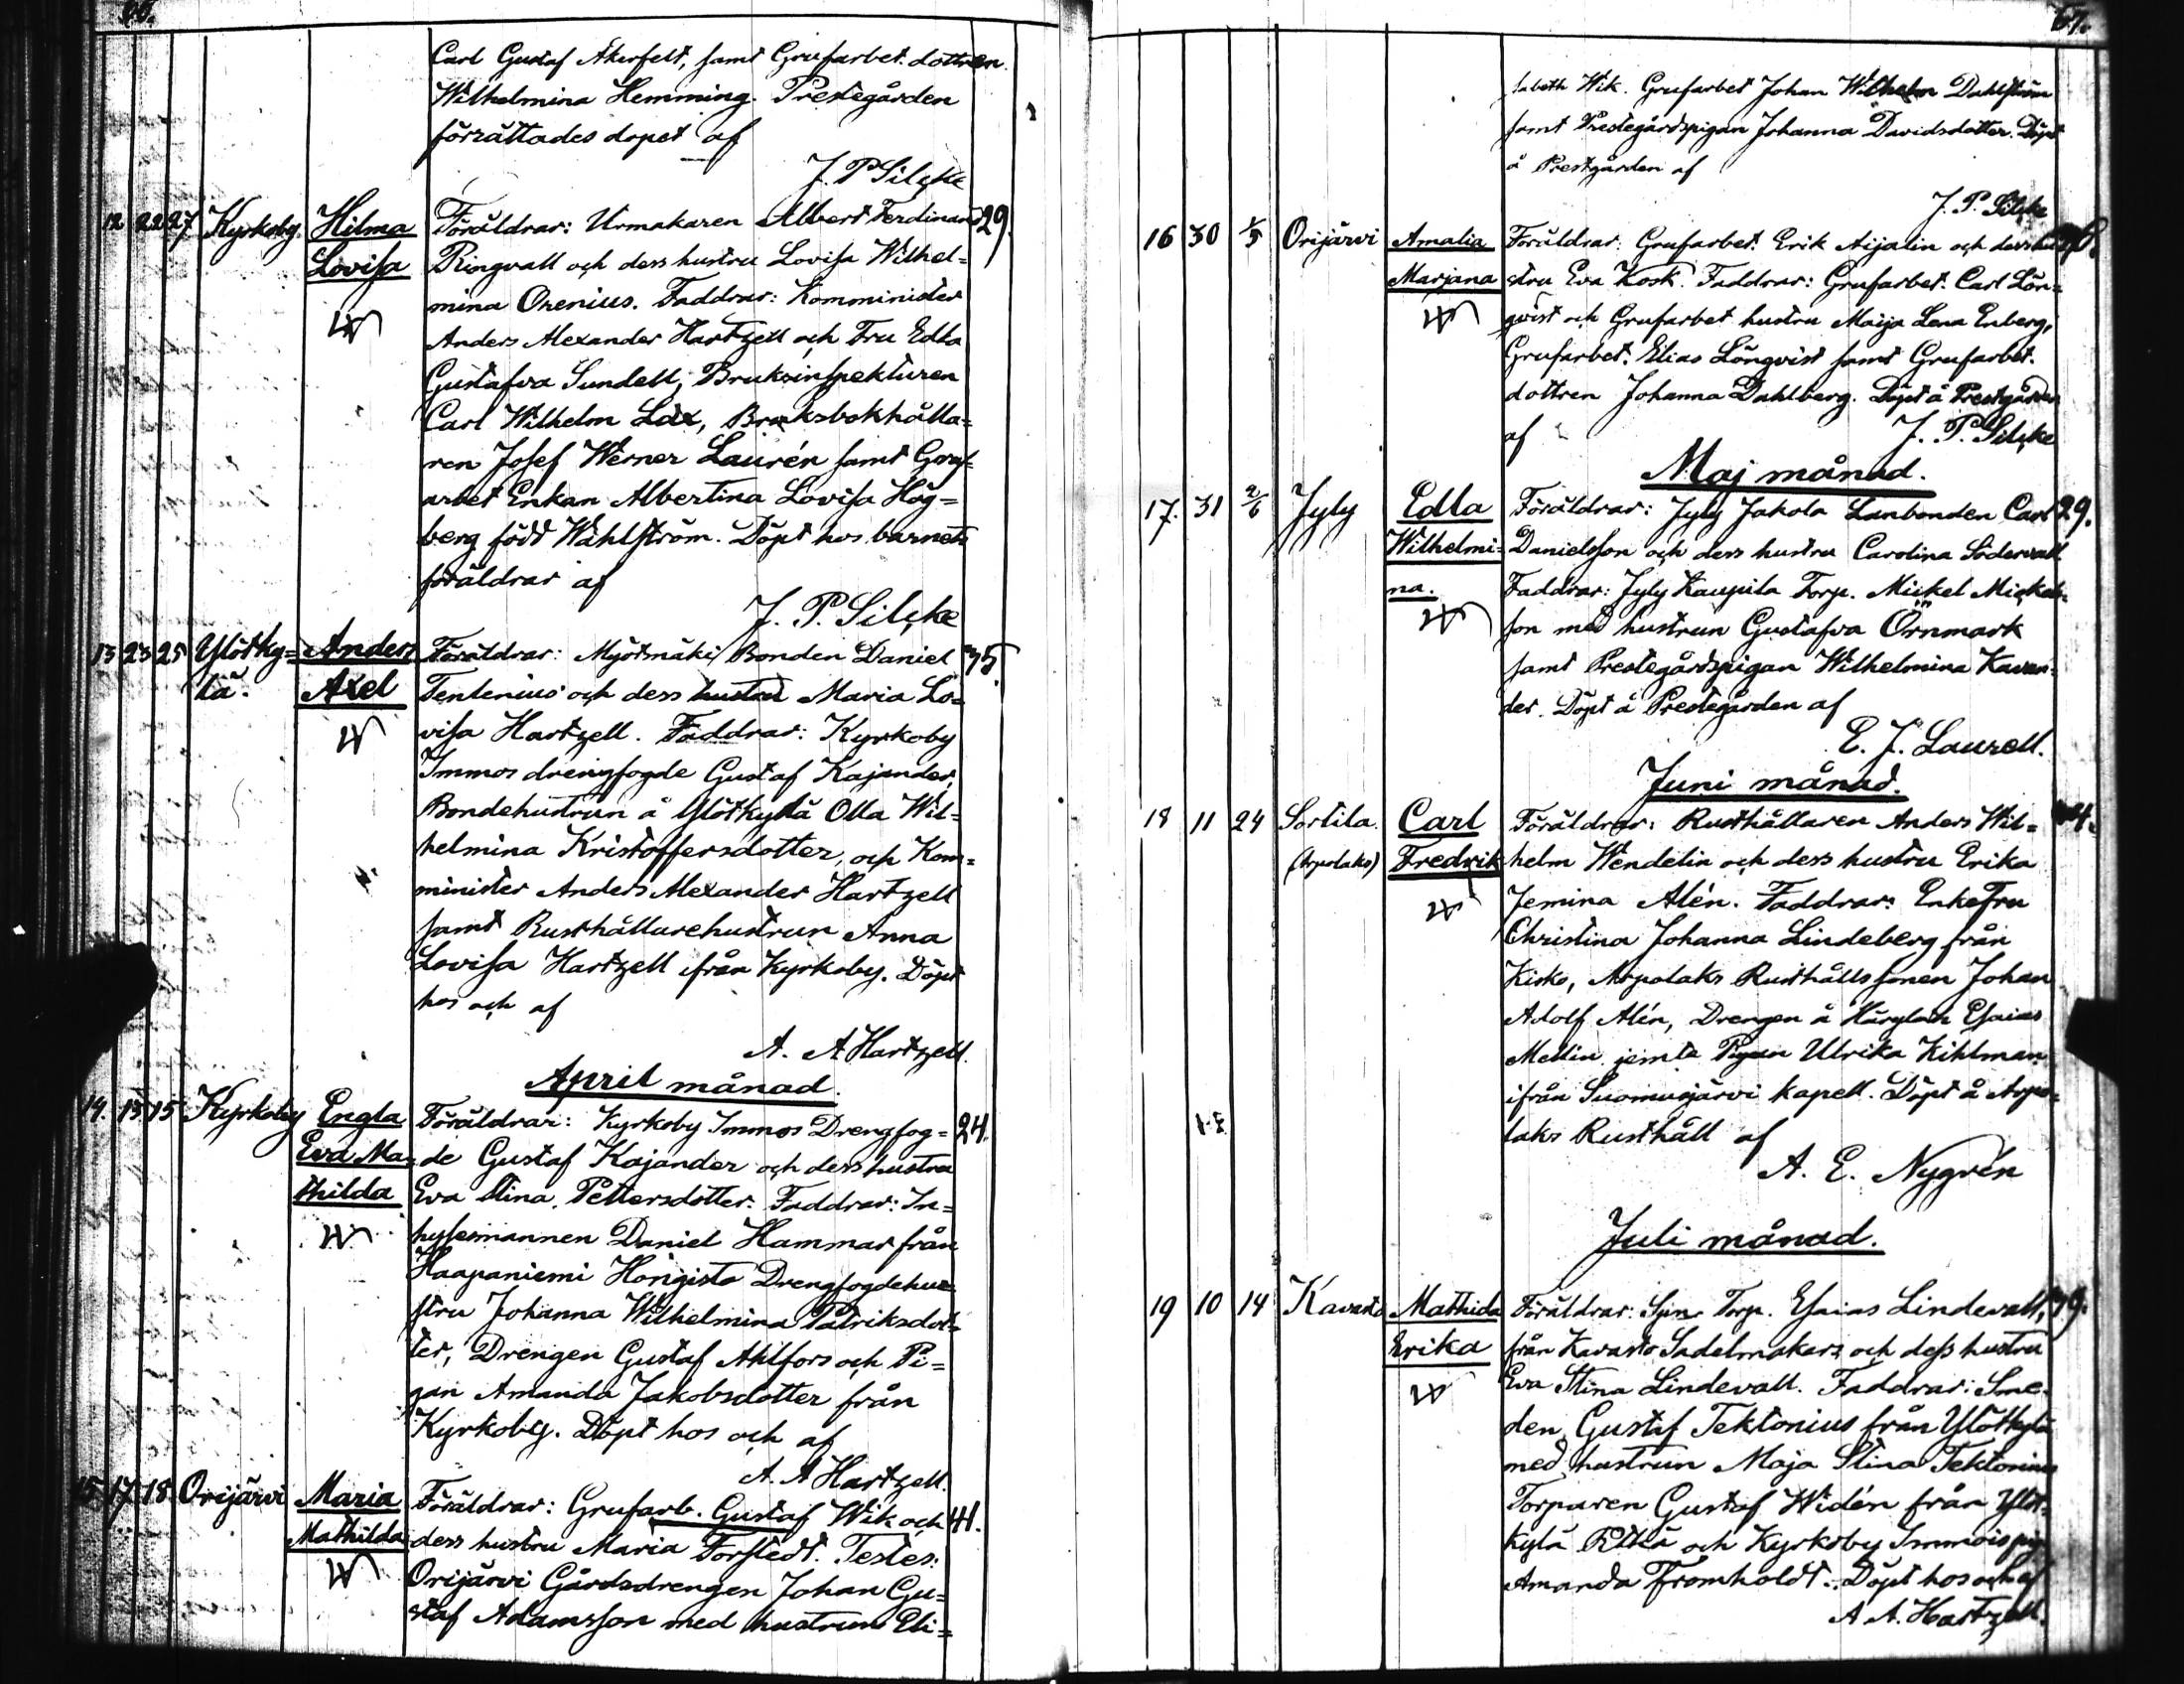 66.
Carl Gustaf Åkerfelt, samt Grufarbet. dottren
Wilhelmina Hemming. Prestegården
förrättades dopet af
J. P. Silcke
12 22 27 Kyrkoby. Hilma Föräldrar: Urmakaren Albert Ferdinand 29.
Lovisa Ringvall och dess hustru Lovisa Wilhel=
mina Orenius. Faddrar: Komminister
Anders Alexander Hartzell och Fru Edla
Gustafva Sundell, Bruksinspekturen
Carl Wilhelm Lax, Bruksbokhålla=
ren Josef Werner Laurén samt Gruf=
arbet Enkan Albertina Lovisa Hög=
berg född Wahlström. Döpt hos barnets
föräldrar af
J. P. Silcke
13 23 25 Ylötky= Anders Föräldrar: Myötmäki Bonden Daniel 35.
lä. Axel Tentenius och dess hustru Maria Lo=
visa Hartzell. Faddrar: Kyrkoby
Immos drengfogde Gustaf Kajander,
Bondehustrun å Ylötkylä Olla Wil=
helmina Kristoffersdotter, och Kom=
minister Anders Alexander Hartzell
samt Rusthållarehustrun Anna
Lovisa Hartzell ifrån Kyrkoby. Döpt
hos och af
A. A Hartzell.
April månad.
14. 13 15 Kyrkoby Engla Föräldrar: Kyrkoby Immos Drengfog= 24.
Eva Ma= de Gustaf Kajander och dess hustru
thilda Eva Stina Pettersdotter. Faddrar: In=
hysesmannen Daniel Hammar från
Haapaniemi Hongisto Drengfogdehu
stru Johanna Wilhelmina Patriksdot=
ter, Drengen Gustaf Ahlfors och Pi=
gan Amanda Jakobsdotter från
Kyrkoby. Döpt hos och af
A. A Hartzell.
15 17 18 Orijärvi Maria Föräldrar: Grufarb. Gustaf Wik och 41.
Mathilda dess hustru Maria Forstedt. Testes:
Orijärvi Gårdsdrengen Johan Gu=
staf Adamsson med hustrun Eli=
67.
sabeth Wik. Grufarbet Johan Wilhelm Dahlström
samt Prestegårdspigan Johanna Davidsdotter. Döpt
å Prestgården af
J. P. Silcke
16 30 1/5 Orijärvi Amalia Föräldrar: Grufarbet. Erik Aijalin och dess hu
Marjana stru Eva Kosk. Faddrar: Grufarbet. Carl Lön=
qvist och Grufarbet hustru Maija Lena Enberg,
Grufarbet. Elias Lönqvist samt Grufarbet.
dottren Johanna Dahlberg. Döpt å Prestgården
af J. P. Silcke
Maj månad.
17. 31 2/6 Jyly Edla Föräldrar: Jyly Jakola Lanbonden Carl 29.
Wilhelmi= Danielsson och dess hustru Carolina Södervall
na. Faddrar: Jyly Kaupila Torp. Mickel Mickels=
son med hustrun Gustafva Örnmark
samt Prestegårdspigan Wilhelmina Kavan=
der. Döpt å Prestegården af
E. J. Laurell.
Juni månad.
18 11 24 Sortila. Carl Föräldrar: Rusthållaren Anders Wil=
(Arpolaks) Fredrik helm Wendelin och dess hustru Erika
Jemina Alén. Faddrar: EnkeFru
Christina Johanna Lindeberg från
Kisko, Arpolaks Rusthålls sonen Johan
Adolf Alén, Drengen å Esaias
Mellin jemte Pigan Ulrika Kihlman
ifrån Suomusjärvi Kapell. Döpt å Arpo=
laks Rusthåll af
A. E. Nygrén
Juli månad.
19 10 14 Kavasto Mathida Föräldrar: Torp. Esaias Lindevall, 39.
Erika från Kavasto Sadelmakars och dess hustru
Eva Stina Lindevall. Faddrar: Sme=
den Gustaf Tektonius från Ylötkylä
med hustrun Maja Stina Tektonius
Torparen Gustaf Widén från Ylöt=
kylä och Kyrkoby Immois pig
Amanda Fromholdt. Döpt hos och af
A A. Hartzell.